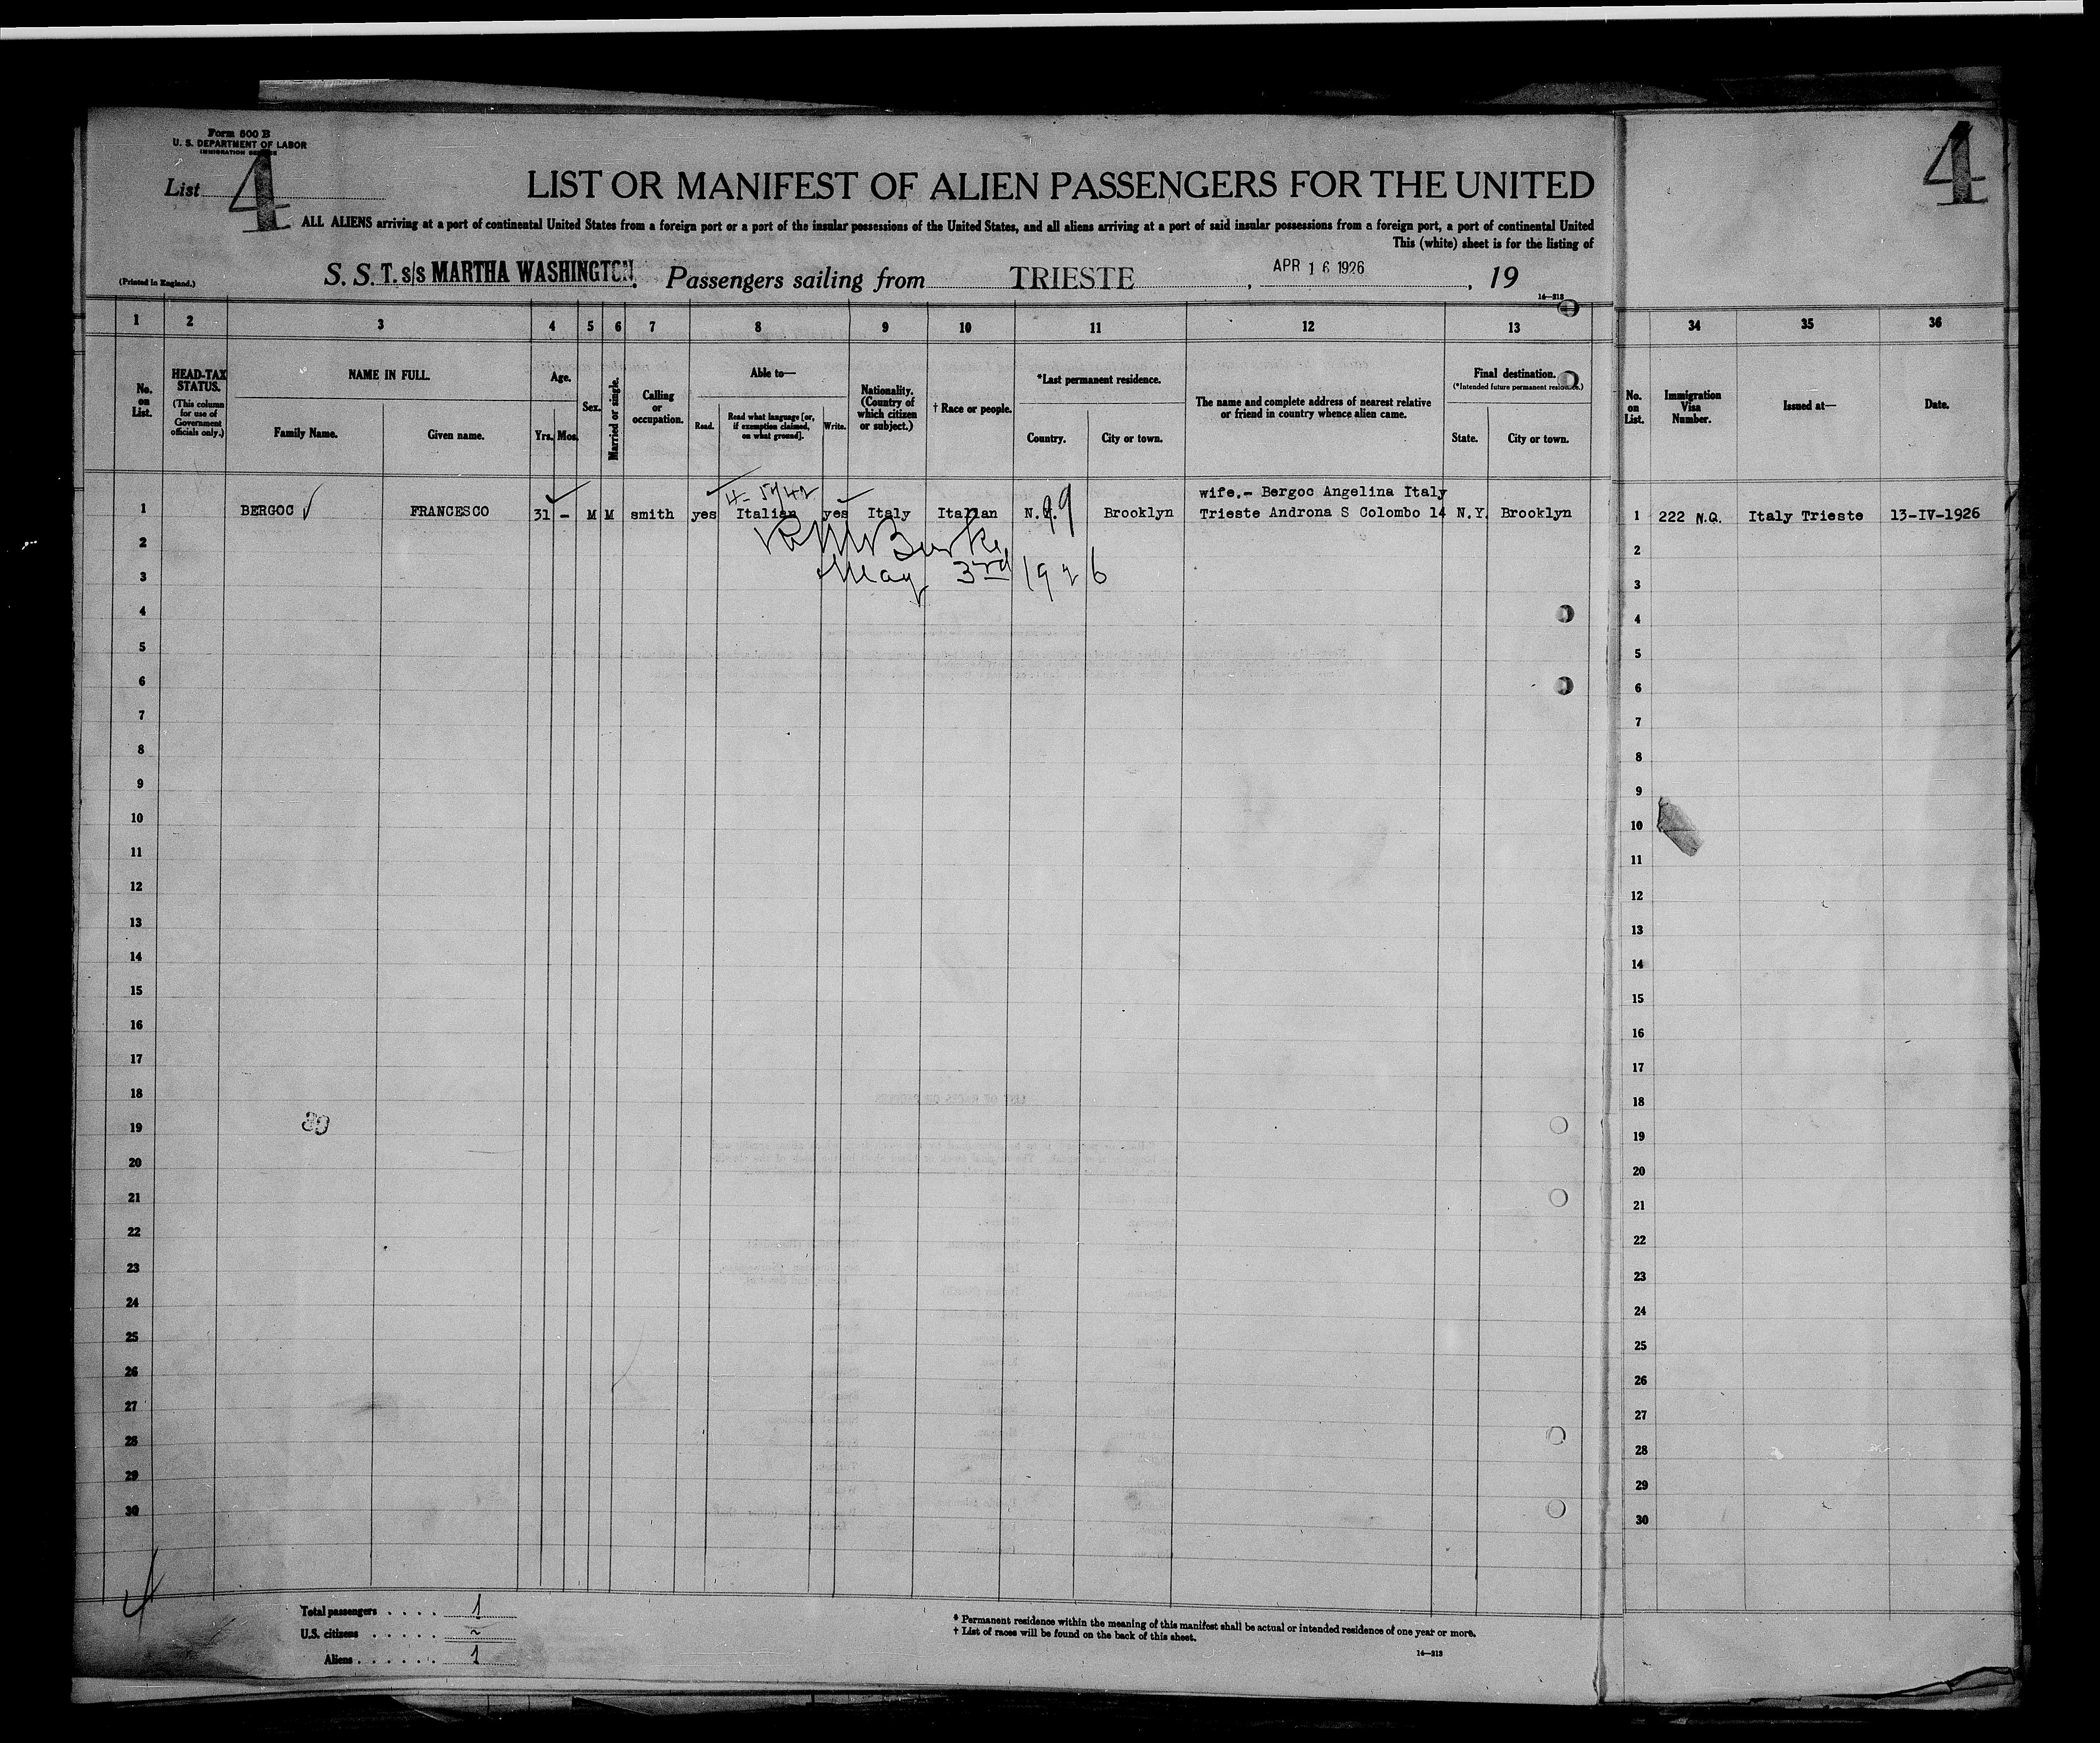 Form 600 B
U. S. DEPARTMENT OF LABOR
IMMIGRATION SERVICE
List 4
4
LIST OR MANIFEST OF ALIEN PASSENGERS FOR THE UNITED
ALL ALIENS arriving at a port of continental United States from a foreign port or a port of the insular possessions of the United States, and all aliens arriving at a port of said insular possessions from a foreign port, a port of continental United
This (white) sheet is for the listing of
(Printed in England.)
S. S. T. s/s MARTHA WASHINGTON. Passengers sailing from TRIESTE, APR 16 1926, 19
14—213
1 2 3 4 5 6 7 8 9 10 11 12 13 34 35 36
No. on List.
HEAD-TAX STATUS. (This column for use of Government officials only.)
NAME IN FULL.
Family Name. Given name.
Age.
Yrs. Mos.
Sex.
Married or single.
Calling or occupation.
Able to—
Read. Read what language [or, if exemption claimed, on what ground]. Write.
Nationality. (Country of which citizen or subject.)
† Race or people.
*Last permanent residence.
Country. City or town.
The name and complete address of nearest relative or friend in country whence alien came.
Final destination.
(*Intended future permanent residence.)
State. City or town.
No. on List.
Immigration Visa Number.
Issued at—
Date.
4- 5742
99
wife.- Bergoc Angelina Italy
1 BERGOC FRANCESCO 31 - M M smith yes Italian yes Italy Italian N.Y. Brooklyn Trieste Androna S Colombo 14 N.Y. Brooklyn 1 222 N.Q. Italy Trieste 13-IV-1926
2 Burke 2
3 May 3rd 1926 3
4 4
5 5
6 6
7 7
8 8
9 9
10 10
11 11
12 12
13 13
14 14
15 15
16 16
17 17
18 18
19 19
20 20
21 21
22 22
23 23
24 24
25 25
26 26
27 27
28 28
29 29
30 30
Total passengers . . . . 1
U.S. citizens . . . . . ~
Aliens . . . . . . 1
* Permanent residence within the meaning of this manifest shall be actual or intended residence of one year or more.
† List of races will be found on the back of this sheet.
14—213